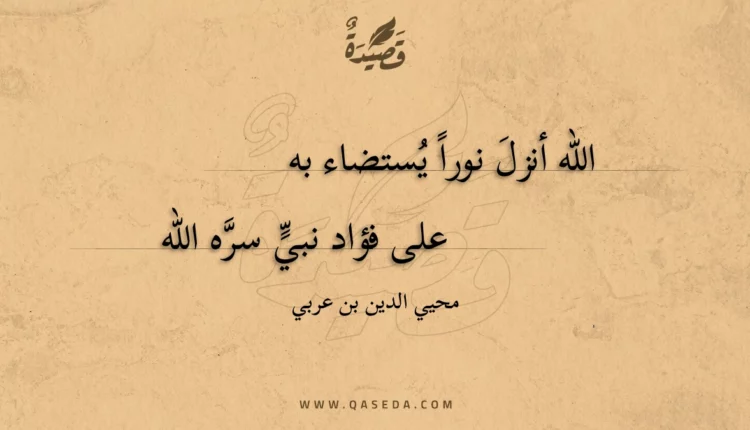 قَصِيْدَةٌ
الله أنزلَ نوراً يُستضاء به
على فؤاد نبيٍّ سرَّه الله
محيي الدين بن عربي
WWW.QASEDA.COM